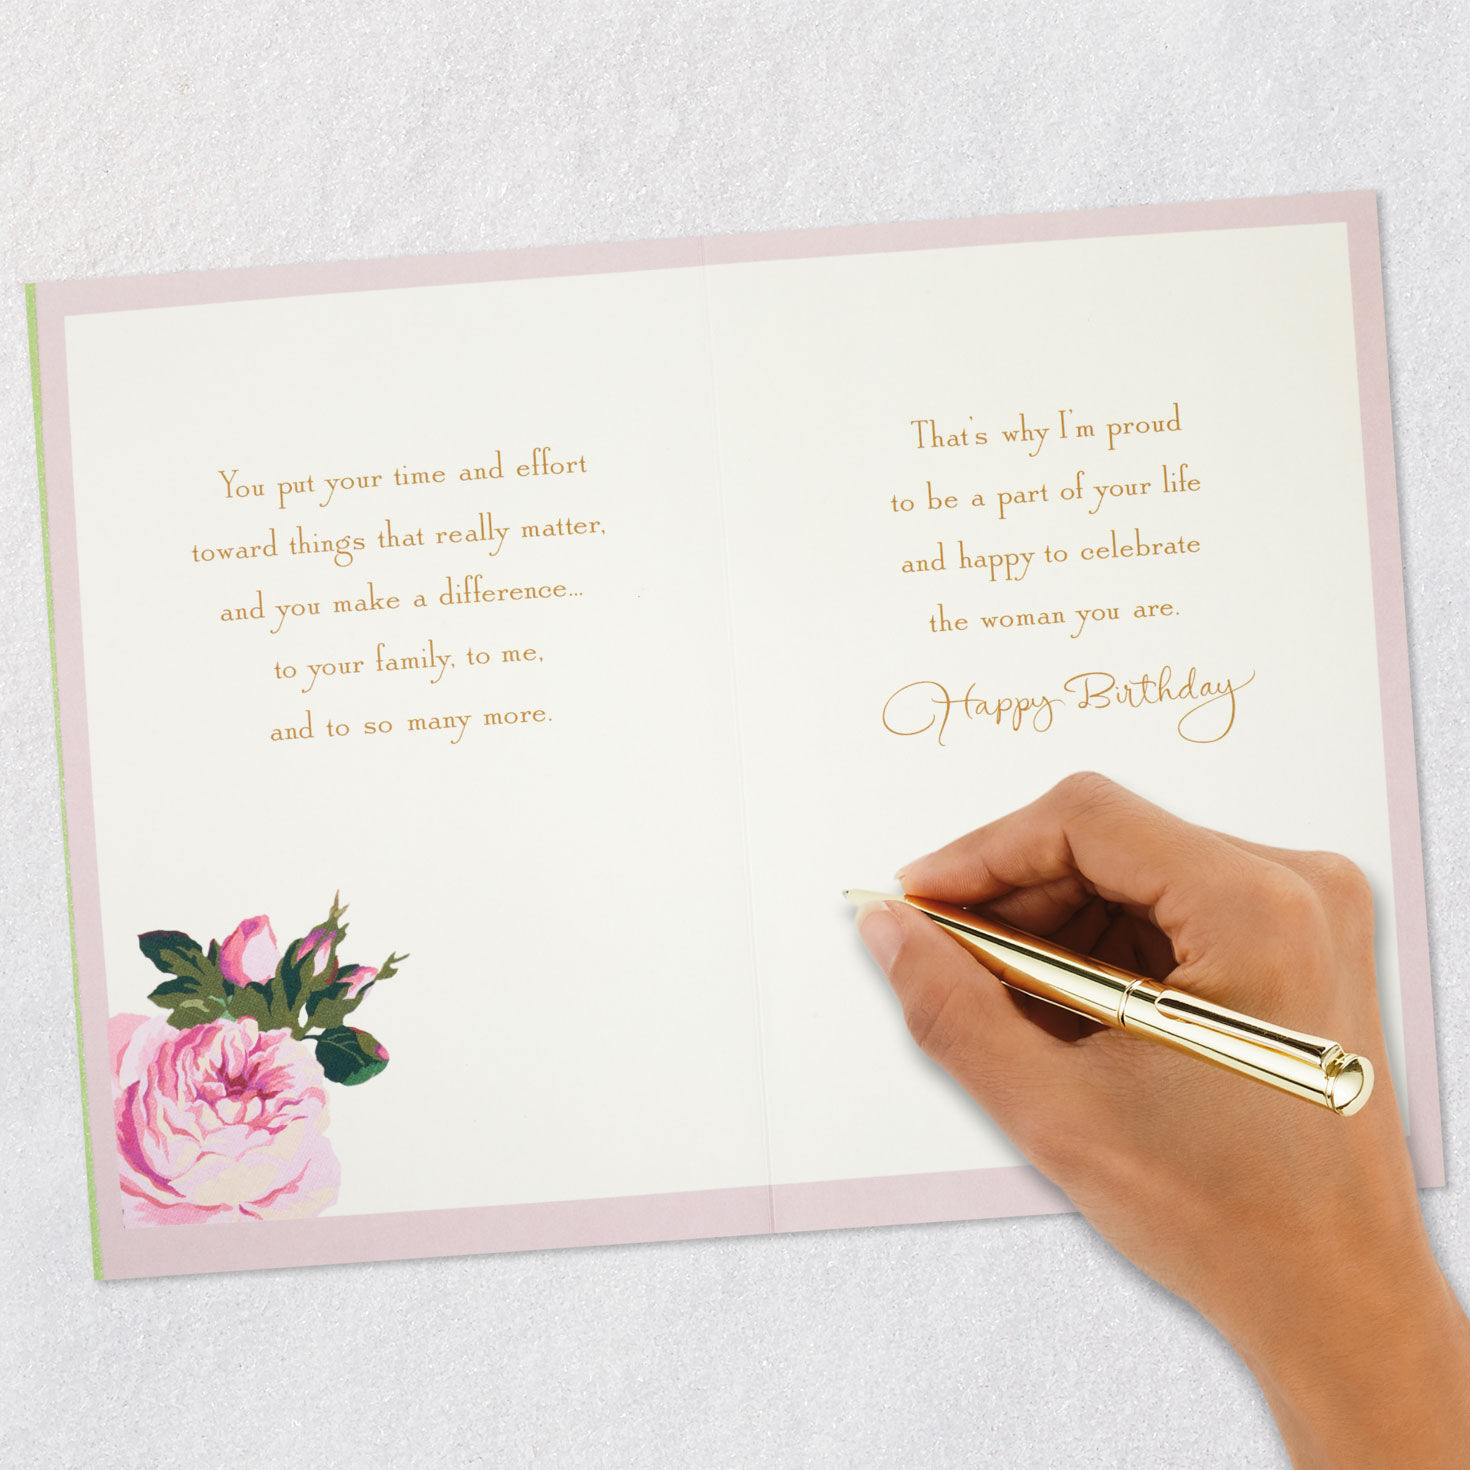 You put your time and effort
toward things that really matter,
and you make a difference...
to your family, to me,
and to so many more.
That's why I'm proud
to be a part of your life
and happy to celebrate
the woman you are.
Happy Birthday